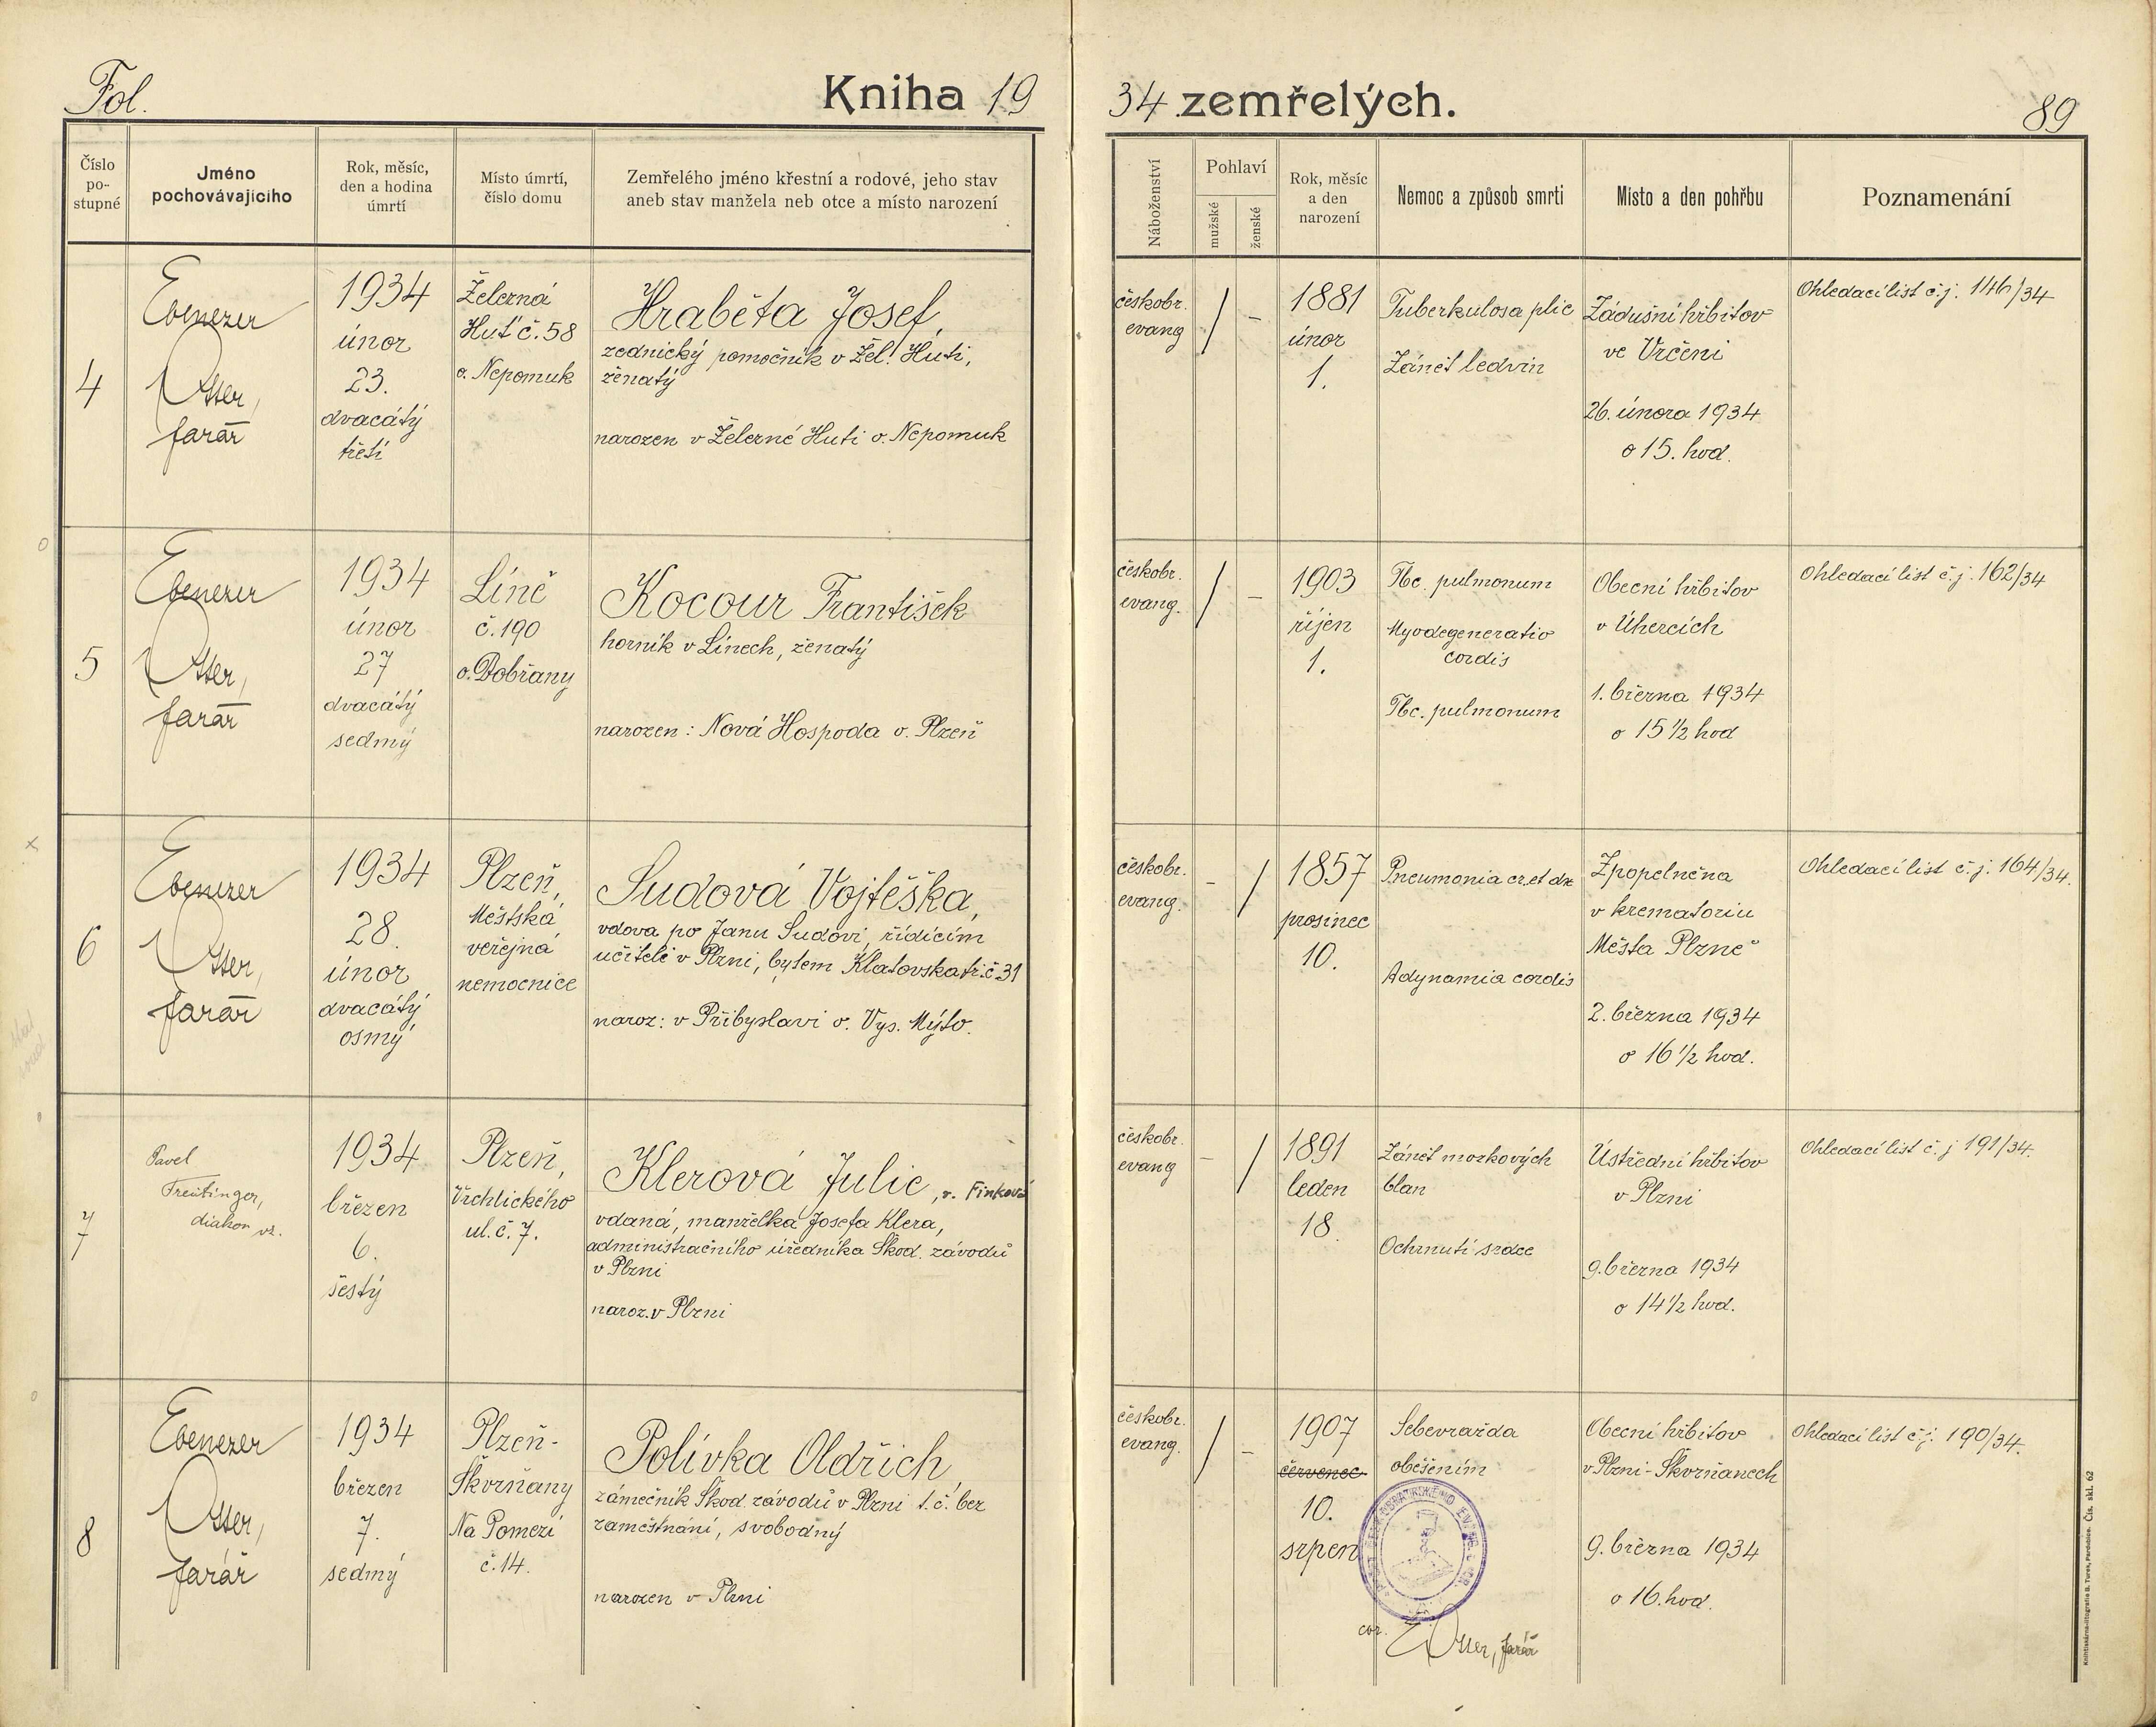 Fol.
Kniha 19
34 zemřelých.
89
Číslo po-stupné
Jméno pochovávajícího
Rok, měsíc, den a hodina úmrtí
Místo úmrtí, číslo domu
Zemřelého jméno křestní a rodové, jeho stav
aneb stav manžela neb otce a místo narození
Náboženství
Pohlaví
mužské
ženské
Rok, měsíc a den narození
Nemoc a způsob smrti
Místo a den pohřbu
Poznamenání
4
Ebenezer
Otter,
farář
1934
únor
23.
dvacátý
třetí
Železná
Huť č. 58
o. Nepomuk
Hraběta Josef,
zednický pomocník v Žel. Huti,
ženatý
narozen v Železné Huti o. Nepomuk
českobr.
evang
/
-
1881
únor
1.
Tuberkulosa plic
Zánět ledvin
Zádušní hřbitov
ve Vrčeni
26. února 1934
o 15. hod.
Ohledací list č.j. 146/34
5
Ebenezer
Otter,
farář
1934
únor
27
dvacátý
sedmý
Líně
č. 190
o. Dobřany
Kocour František
horník v Línech, ženatý
narozen: Nová Hospoda o. Plzeň
českobr.
evang.
/
-
1903
říjen
1.
Tbc. pulmonum
Myodegeneratio
cordis
Tbc. pulmonum
Obecní hřbitov
v Úhercích
1. března 1934
o 15 1/2 hod
Ohledací list č.j. 162/34
6
Ebenezer
Otter,
farář
1934
28.
únor
dvacátý
osmý
Plzeň,
Městská
veřejná
nemocnice
Sudová Vojtěška,
vdova po Janu Sudovi, řídícím
učiteli v Plzni, bytem Klatovská tř. č 31
naroz: v Přibyslavi o. Vys. Mýto.
českobr.
evang.
-
/
1857
prosinec
10.
Pneumonia cr. et dx
Adynamia cordis
Zpopelněna
v krematoriu
Města Plzně
2. března 1934
o 16 1/2 hod.
Ohledací list č.j. 164/34.
7
Pavel
diakon vz.
1934
březen
6.
šestý
Plzeň,
Vrchlického
ul. č. 7.
Klerová Julie, r. Finková
vdaná, manželka Josefa Klera,
administračního úředníka Škod. závodů
v Plzni
naroz. v Plzni
českobr.
evang
-
/
1891
leden
18.
Zánět mozkových
blan
Ochrnutí srdce
Ústřední hřbitov
v Plzni
9. března 1934
o 14 1/2 hod.
Ohledací list č. j 191/34.
8
Ebenezer
Otter,
farář
1934
březen
7.
sedmý
Plzeň-
Škvrňany
Na Pomezí
č. 14.
Polívka Oldřich,
zámečník Škod. závodů v Plzni t. č. bez
zaměstnání, svobodný
narozen v Plzni
českobr.
evang.
/
-
1907
červenec
10.
srpen
Sebevražda
oběšením
cor. Otter, farář
Obecní hřbitov
v Plzni-Škvrňanech
9. března 1934
o 16. hod.
Ohledací list č.j. 190/34.